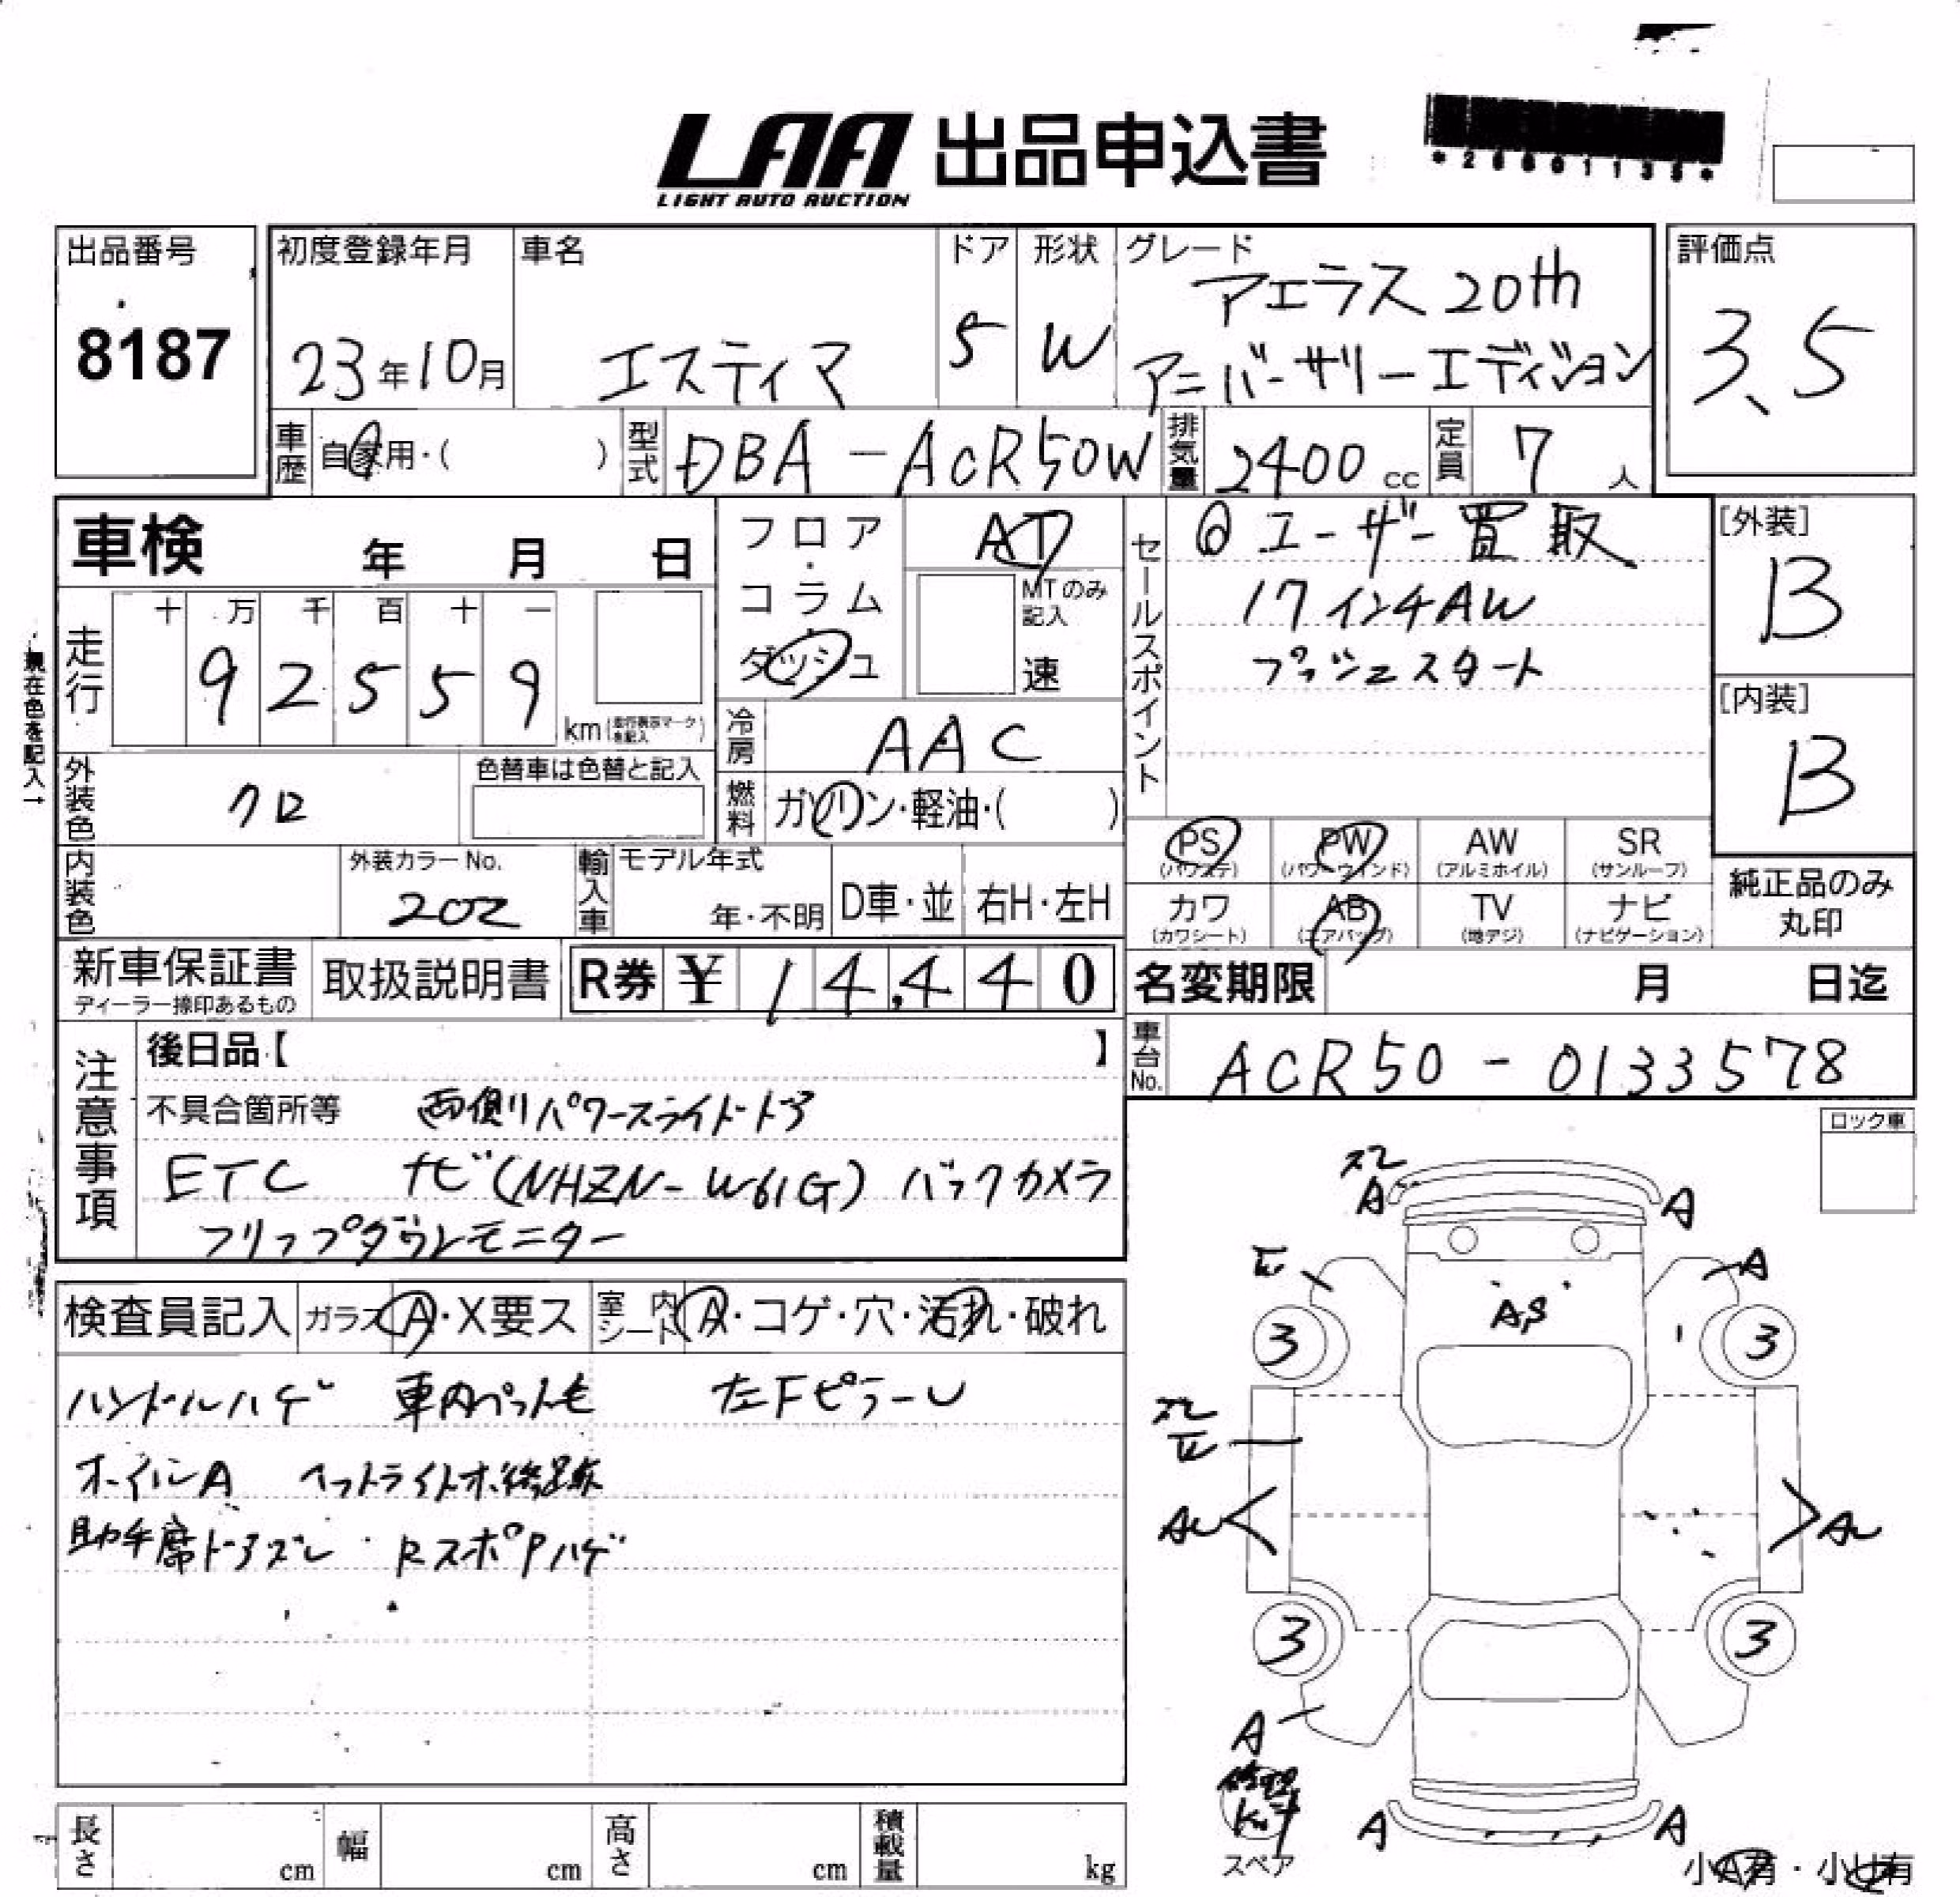 LAA 出品申込書
LIGHT AUTO AUCTION
出品番号
8187
初度登録年月
23年10月
車名
エスティマ
ドア
5
形状
W
グレード
アエラス 20th
アニバーサリーエディション
評価点
3.5
車歴
自家用・( )
型式
DBA-ACR50W
排気量
2400cc
定員
7人
車検 年 月 日
走行
十 万 千 百 十 一
9 2 5 5 9
km
現在色を記入→
外装色
クロ
色替車は色替と記入
内装色
外装カラーNo.
202
輸入車
モデル年式
年・不明
D車・並
右H・左H
フロア・コラム・ダッシュ
AT
MTのみ記入
速
冷房
AAC
燃料
ガソリン・軽油・( )
セールスポイント
◎ユーザー買取
17インチAW
プッシュスタート
[外装]
B
[内装]
B
PS (パワステ)
PW (パワーウインド)
AW (アルミホイル)
SR (サンルーフ)
カワ (カワシート)
AB (エアバッグ)
TV (地デジ)
ナビ (ナビゲーション)
純正品のみ丸印
新車保証書
ディーラー捺印あるもの
取扱説明書
R券 ¥ 14,440
名変期限 月 日迄
車台No.
ACR50-0133578
注意事項
後日品【 】
不具合箇所等 両側パワースライドドア
ETC ナビ(NHZN-W61G) バックカメラ
フリップダウンモニター
ロック車
検査員記入
ガラス A・X要ス
室内シート A・コゲ・穴・汚れ・破れ
ハンドルハゲ 車内ペット毛 左FピラーU
ホイルA ヘッドライトホ修跡
助手席ドアズレ RスポPハゲ
A
A
A
3
3
3
3
A
A
A
スペア
小A有・小U有
長さ cm
幅 cm
高さ cm
積載量 kg